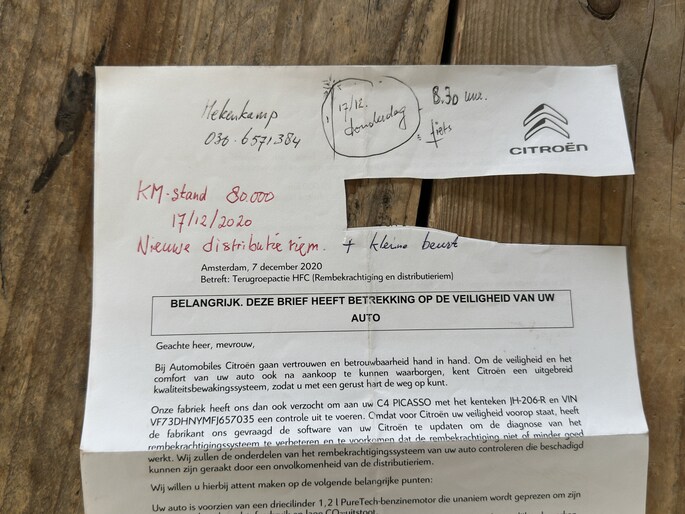 Mekenkamp
030-6571384
17/12.
donderdag
8.30 uur.
fiets
CITROËN
KM-stand 80.000
17/12/2020
Nieuwe distributie riem. + kleine beurt
Amsterdam, 7 december 2020
Betreft: Terugroepactie HFC (Rembekrachtiging en distributieriem)
BELANGRIJK. DEZE BRIEF HEEFT BETREKKING OP DE VEILIGHEID VAN UW
AUTO
Geachte heer, mevrouw,
Bij Automobiles Citroën gaan vertrouwen en betrouwbaarheid hand in hand. Om de veiligheid en het
comfort van uw auto ook na aankoop te kunnen waarborgen, kent Citroën een uitgebreid
kwaliteitsbewakingssysteem, zodat u met een gerust hart de weg op kunt.
Onze fabriek heeft ons dan ook verzocht om aan uw C4 PICASSO met het kenteken JH-206-R en VIN
VF73DHNYMFJ657035 een controle uit te voeren. Omdat voor Citroën uw veiligheid voorop staat, heeft
de fabrikant ons gevraagd de software van uw Citroën te updaten om de diagnose van het
rembekrachtigingssysteem te verbeteren en te voorkomen dat de rembekrachtiging niet of minder goed
werkt. Wij zullen de onderdelen van het rembekrachtigingssysteem van uw auto controleren die beschadigd
kunnen zijn geraakt door een onvolkomenheid van de distributieriem.
Wij willen u hierbij attent maken op de volgende belangrijke punten:
Uw auto is voorzien van een driecilinder 1,2 l PureTech-benzinemotor die unaniem wordt geprezen om zijn